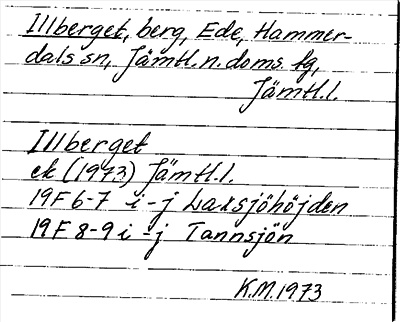 Illberget, berg, Ede, Hammer-
dals sn, Jämtl. n. doms. fg,
Jämtl.l.
Illberget
ek (1973) Jämtl.l.
19F 6-7 i-j Laxsjöhöjden
19F 8-9 i-j Tannsjön
K.M. 1973